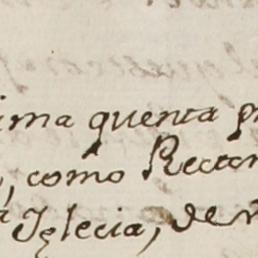 ima quenta p
, como Rector
a Iglecia, de